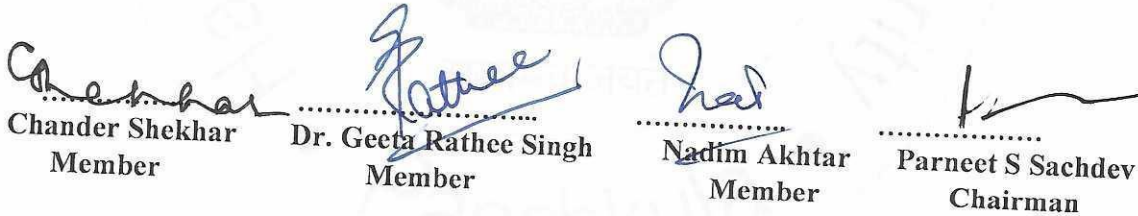 Chander Shekhar
Member
Dr. Geeta Rathee Singh
Member
Nadim Akhtar
Member
Parneet S Sachdev
Chairman